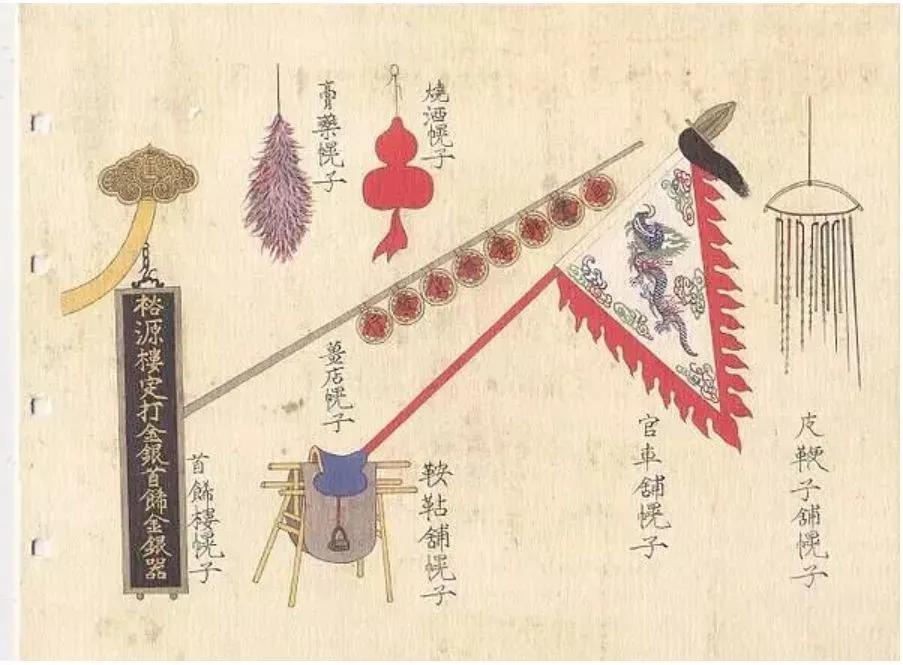 皮鞭子舖幌子
官車舖幌子
燒酒幌子
鞍鞊舖幌子
膏藥幌子
薑店幌子
首餙樓幌子
裕源樓定打金銀首餙金銀器